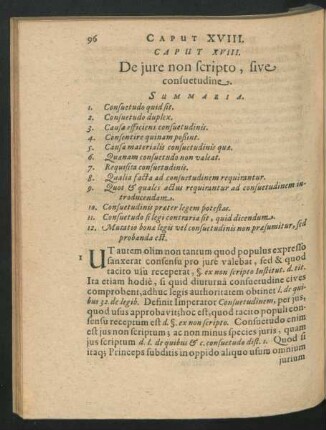 96 CAPUT XVIII.
CAPUT XVIII.
De jure non scripto, sive
consuetudine.
SUMMARIA.
1. Consuetudo quid sit.
2. Consuetudo duplex.
3. Causa efficiens consuetudinis.
4. Consentire quinam possint.
5. Causa materialis consuetudinis quæ.
6. Quænam consuetudo non valeat.
7. Requisita consuetudinis.
8. Qualia facta ad consuetudinem requirantur.
9. Quot & quales actus requirantur ad consuetudinem in-
troducendam.
10. Consuetudinis præter legem potestas.
11. Consuetudo si legi contraria sit, quid dicendum.
12. Mutatio bona legis vel consuetudinis non præsumitur, sed
probanda est.
1 UT autem olim non tantum quod populus expresso
sanxerat consensu pro jure valebat, sed & quod
tacito usu receperat, § ex non scripto Institut. d. tit.
Ita etiam hodiè, si quid diuturnâ consuetudine cives
comprobent, adhuc legis authoritatem obtinet l. de qui-
bus 32. de legib. Definit Imperator Consuetudinem, per jus,
quod usus approbavit; hoc est, quod tacito populi con-
sensu receptum est d. §. ex non scripto. Consuetudo enim
est jus non scriptum; ac non minus species juris, quam
jus scriptum d. l. de quibus & c. consuetudo dist. 1. Quod si
itaq; Princeps subditis in oppido aliquo usum omnium
jurium